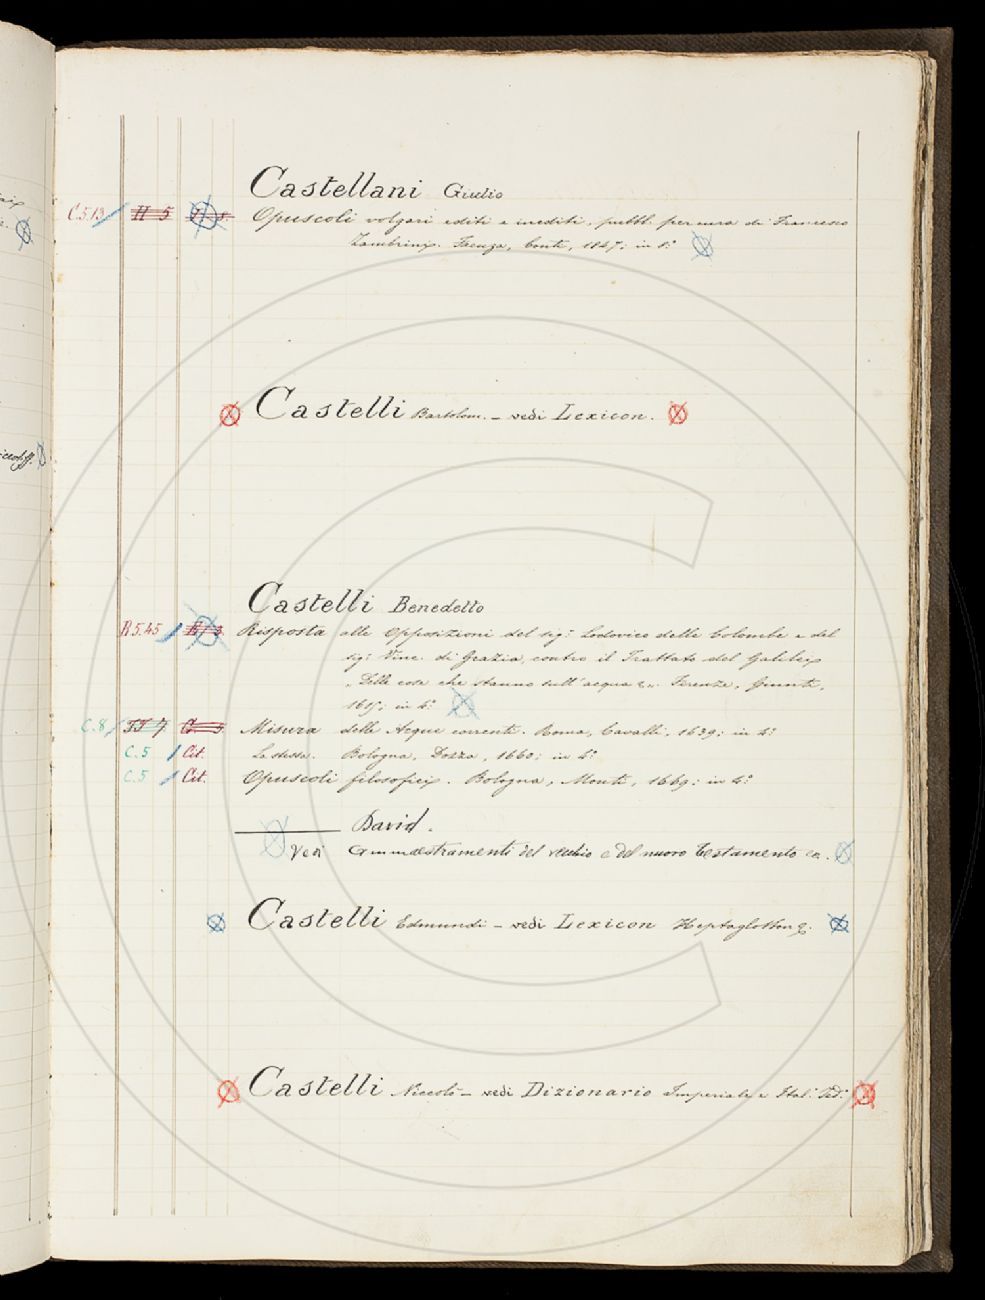 Castellani Giulio
C.5.13 H 5 Opuscoli volgari editi e inediti, pubbl. per cura di Francesco
Zambrini. Faenza, Conti, 1847; in 8º
Castelli Bartolom. - vedi Lexicon.
Castelli Benedetto
R.5.45 Risposta alle Opposizioni del sig: Lodovico delle Colombe e del
sig: Vinc. di Grazia, contro il Trattato del Galilei
"Delle cose che stanno sull'acqua &". Firenze, Giunti,
1615; in 4º
C.8 Misura delle Acque correnti. Roma, Cavalli, 1639; in 4º
C.5 Cit. La stessa. Bologna, Dozza, 1660; in 4º
C.5 Cit. Opuscoli filosofici. Bologna, Monti, 1669; in 4º
David.
Vedi Ammaestramenti del vecchio e del nuovo Testamento
Castelli Edmundi - vedi Lexicon Heptaglotton &.
Castelli Niccolò - vedi Dizionario Imperiale Ital. Ted.